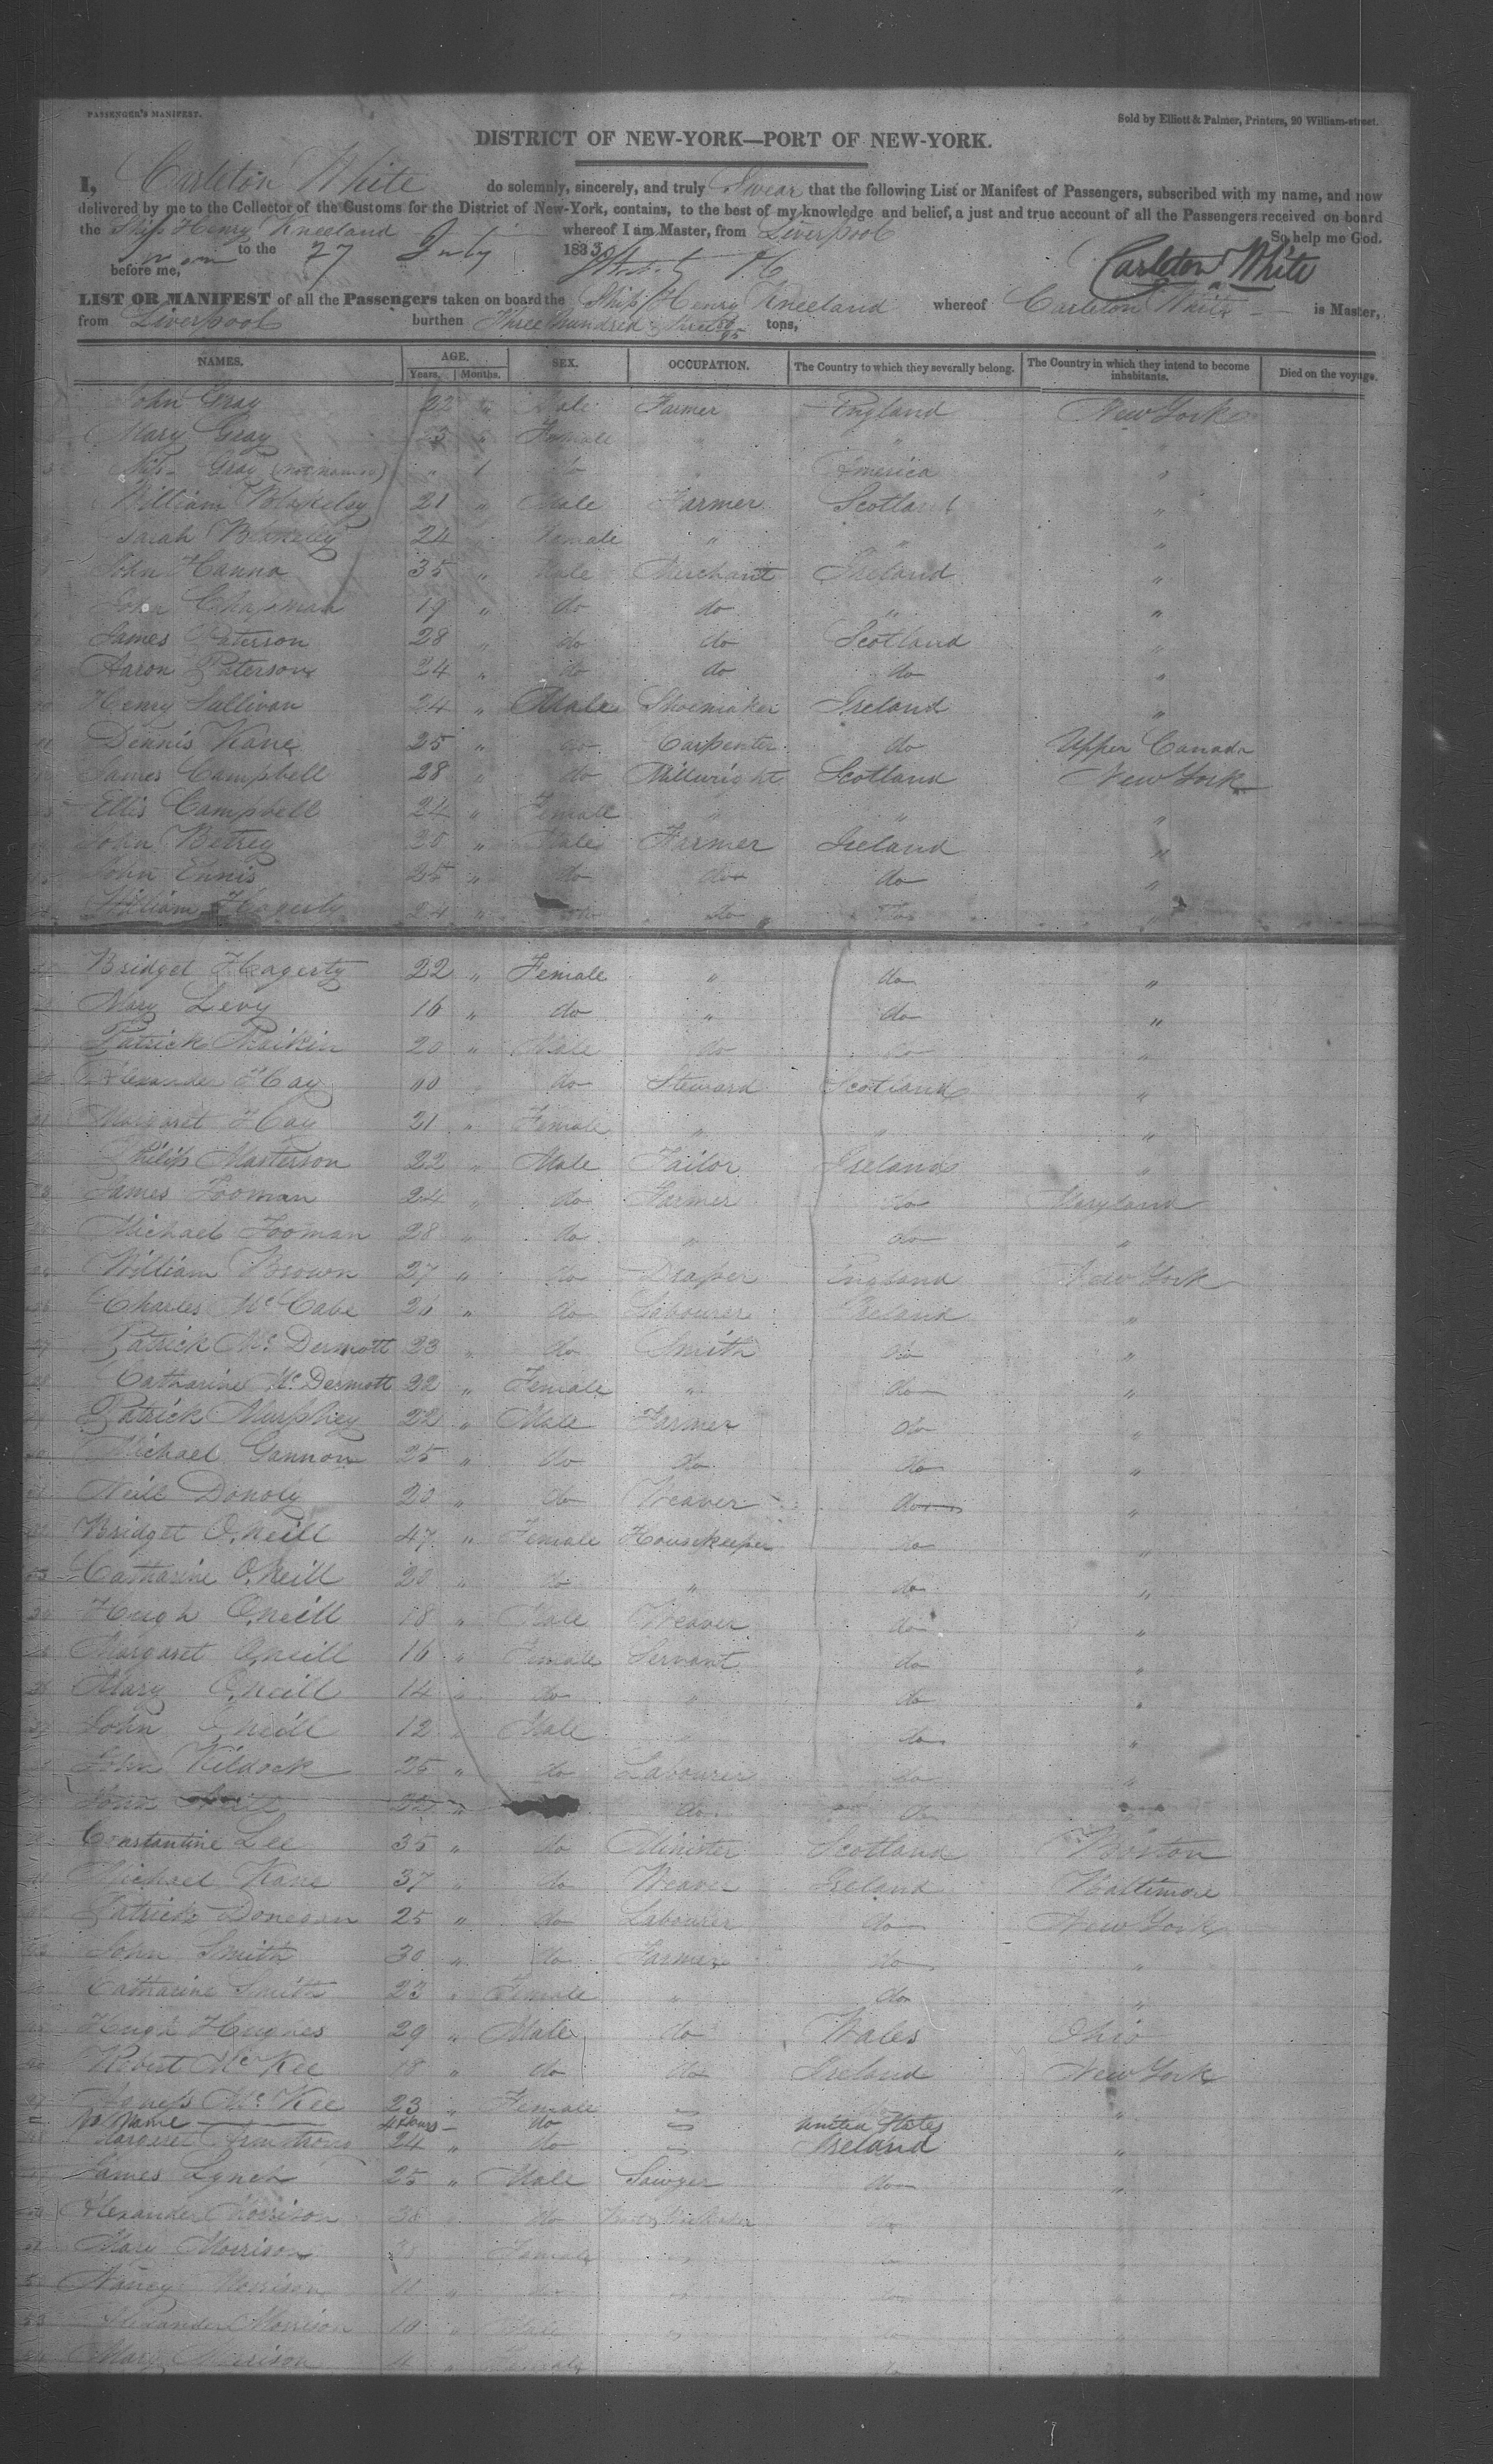 PASSENGER'S MANIFEST.
Sold by Elliott & Palmer, Printers, 20 William-street.
DISTRICT OF NEW-YORK—PORT OF NEW-YORK.
I, Carleton White do solemnly, sincerely, and truly Swear that the following List or Manifest of Passengers, subscribed with my name, and now
delivered by me to the Collector of the Customs for the District of New-York, contains, to the best of my knowledge and belief, a just and true account of all the Passengers received on board
the Ship Henry Kneeland whereof I am Master, from Liverpool So help me God.
Sworn to the 27 July 183
before me, Carleton White
LIST OR MANIFEST of all the Passengers taken on board the Ship Henry Kneeland whereof Carleton White is Master,
from Liverpool burthen Three Hundred & Three tons,
NAMES. AGE. Years. Months. SEX. OCCUPATION. The Country to which they severally belong. The Country in which they intend to become inhabitants. Died on the voyage.
John Gray 22 " Male Farmer England New York
Mary Gray " Female " " "
Gray (not named) " 1 do America "
William Blakeley 21 " Male Farmer Scotland "
Sarah Blakeley 24 " Female " " "
John Hanna 35 " Male Merchant Ireland "
John Chapman 19 " do do " "
James Paterson 28 " do do Scotland "
Aaron Paterson 24 " do do do "
Henry Sullivan 24 " Male Shoemaker Ireland "
Dennis Kane 25 " do Carpenter do Upper Canada
James Campbell 28 " do Millwright Scotland New York
Ellis Campbell 24 " Female " " "
John Betrey 30 " Male Farmer Ireland "
John Ennis 25 " do do do "
William Hagerty 24 " do do do "
Bridget Hagerty 22 " Female " do "
Mary Levy 16 " do " do "
Patrick 20 " Male do do "
Alexander Hay do Steward Scotland "
Margaret Hay 21 " Female " " "
Philip Masterson 22 " Male Tailor Ireland "
James Tooman 24 " do Farmer do Maryland
Michael Tooman 28 " do " do "
William Brown 27 " do Draper England New York
Charles McCabe 26 " do Labourer Ireland "
Patrick McDermott 23 " do Smith do "
Catharine McDermott 22 " Female " do "
Patrick Murphey 22 " Male Farmer do "
Michael Gannon 25 " do do do "
Neill Donoly 20 " do Weaver do "
Bridget O'Neill 47 " Female Housekeeper do "
Catharine O'Neill 20 " do " do "
Hugh O'Neill 18 " Male Weaver do "
Margaret O'Neill 16 " Female Servant do "
Mary O'Neill 14 " do " do "
John O'Neill 12 " Male " do "
John Kildock 25 " do Labourer do "
John do do
Constantine Lee 35 " do Minister Scotland Boston
Michael Kane 37 " do Weaver Ireland Baltimore
Patrick Donegan 25 " do Labourer do New York
John Smith 30 " do Farmer do "
Catharine Smith 23 " Female " do "
Hugh Hughes 29 " Male do Wales Ohio
Robert McKee 18 " do do Ireland New York
Agness McKee 23 " Female "
No Name do United States
Margaret Armstrong 24 " do Ireland "
James Lynch 25 " Male Sawyer do "
Alexander Morrison 38 do do
Mary Morrison Female
Nancy Morrison 11 " do do
Alexander Morrison 10 " Male
Mary Morrison " Female